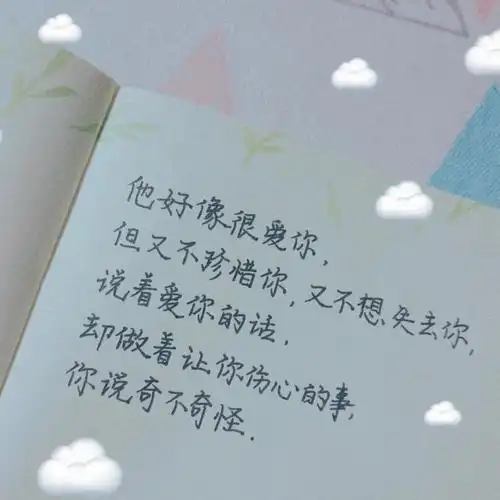 他好像很爱你，
但又不珍惜你，又不想失去你，
说着爱你的话，
却做着让你伤心的事，
你说奇不奇怪．